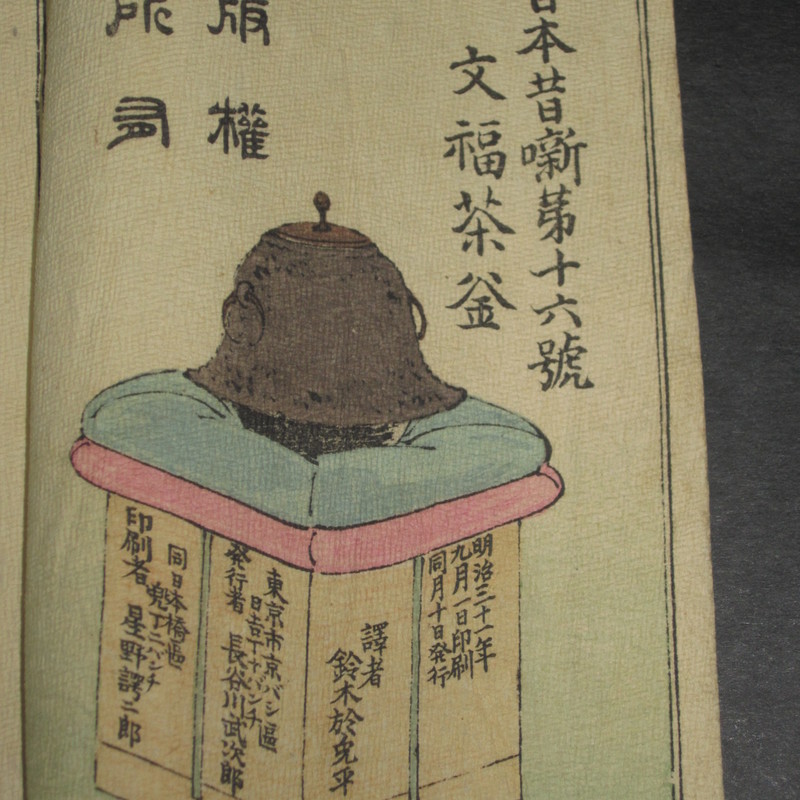 日本昔噺苐十六號
文福茶釜
版權
所有
明治三十一年
九月一日印刷
同月十日発行
譯者
鈴木於兎平
東京市京バシ區
日吉丁十バンチ
発行者 長谷川武次郎
同日本橋區
兜丁二バンチ
印刷者 星野 二郎